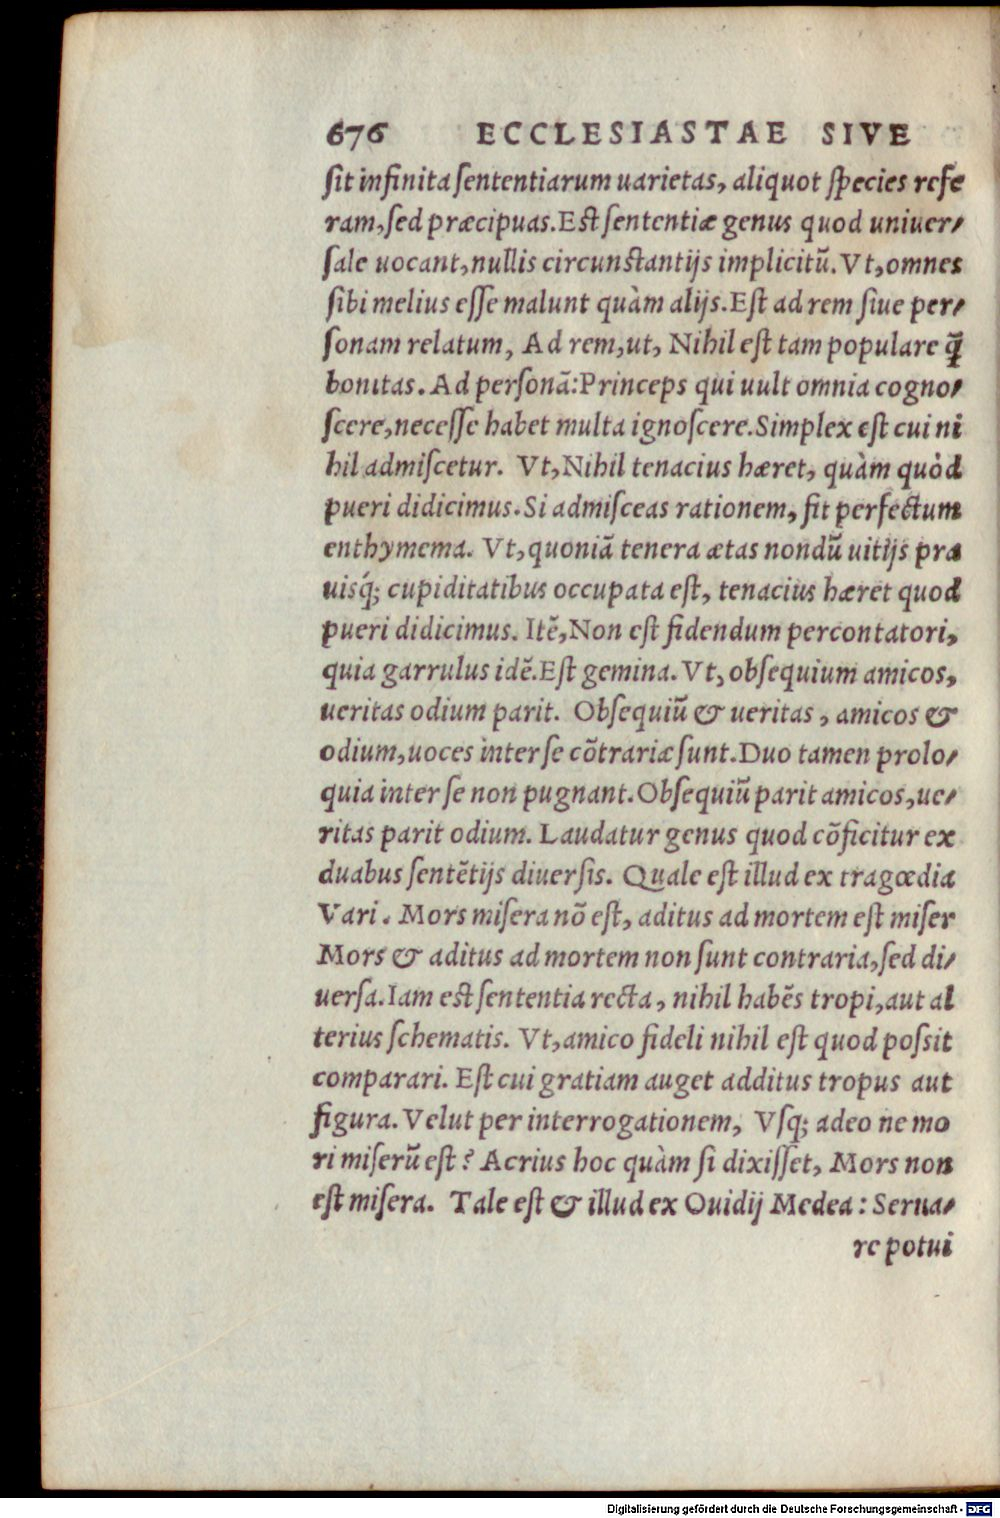 676 ECCLESIASTAE SIVE
sit infinita sententiarum uarietas, aliquot species refe
ram, sed præcipuas. Est sententiæ genus quod uniuer-
sale uocant, nullis circunstantijs implicitū. Vt, omnes
sibi melius esse malunt quàm alijs. Est ad rem siue per-
sonam relatum, Ad rem, ut, Nihil est tam populare q̃
bonitas. Ad personā: Princeps qui uult omnia cogno-
scere, necesse habet multa ignoscere. Simplex est cui ni
hil admiscetur. Vt, Nihil tenacius hæret, quàm quòd
pueri didicimus. Si admisceas rationem, fit perfectum
enthymema. Vt, quoniā tenera ætas nondū uitijs pra
uisq́; cupiditatibus occupata est, tenacius hæret quod
pueri didicimus. Itē, Non est fidendum percontatori,
quia garrulus idē. Est gemina. Vt, obsequium amicos,
ueritas odium parit. Obsequiū & ueritas, amicos &
odium, uoces inter se cōtrariæ sunt. Duo tamen prolo-
quia inter se non pugnant. Obsequiū parit amicos, ue-
ritas parit odium. Laudatur genus quod cōficitur ex
duabus sentētijs diuersis. Quale est illud ex tragœdia
Vari. Mors misera nō est, aditus ad mortem est miser
Mors & aditus ad mortem non sunt contraria, sed di-
uersa. Iam est sententia recta, nihil habēs tropi, aut al
terius schematis. Vt, amico fideli nihil est quod possit
comparari. Est cui gratiam auget additus tropus aut
figura. Velut per interrogationem, Vsq; adeo ne mo
ri miserū est? Acrius hoc quàm si dixisset, Mors non
est misera. Tale est & illud ex Ouidij Medea: Serua-
re potui
Digitalisierung gefördert durch die Deutsche Forschungsgemeinschaft - DFG